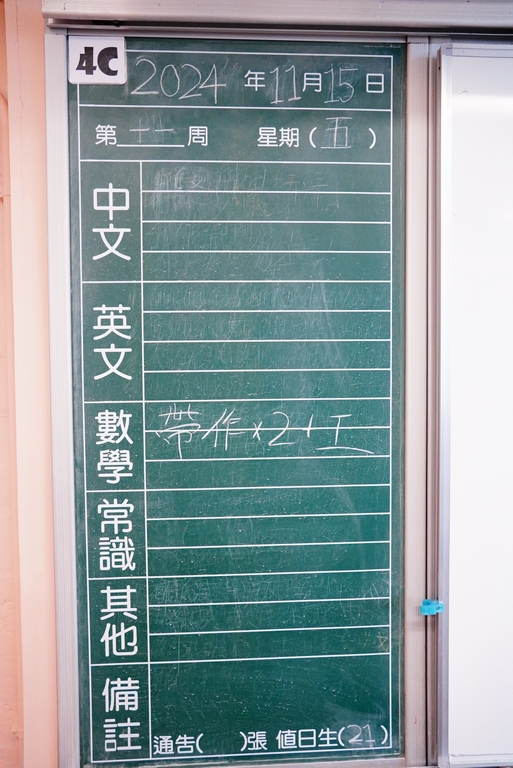 4C
2024年11月15日
第十一周 星期(五)
中文
英文
數學 帶作×2+工
常識
其他
備註
通告( )張 值日生(21)